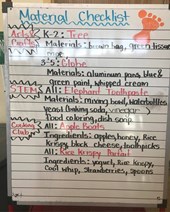 Material Checklist
Arts & K-2: Tree
Crafts Materials: brown bag, green tissue
3-5: Globe
Materials: aluminum pans, blue &
green paint, whipped cream
STEM All: Elephant Toothpaste
Materials: mixing bowl, waterbottles
yeast, baking soda, vinegar
Food coloring, dish soap
Cooking All: Apple Boats
Club Ingredients: apples, honey, Rice
Krispy, block cheese, toothpicks
All: Rice Krispy Parfait
Ingredients: yogurt, Rice Krispy,
Cool whip, Strawberries, spoons